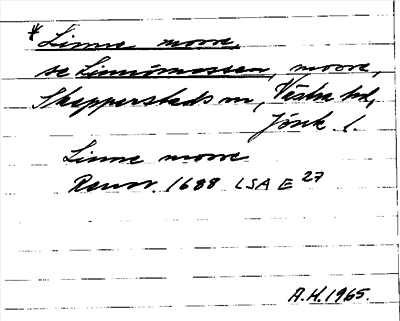 *Linne mosse,
se Linnömossen, mosse,
Skepperstads sn, Västra hd,
Jönk. l.
Linne mosse
Ransv. 1688 LSA E 27
A.H. 1965.